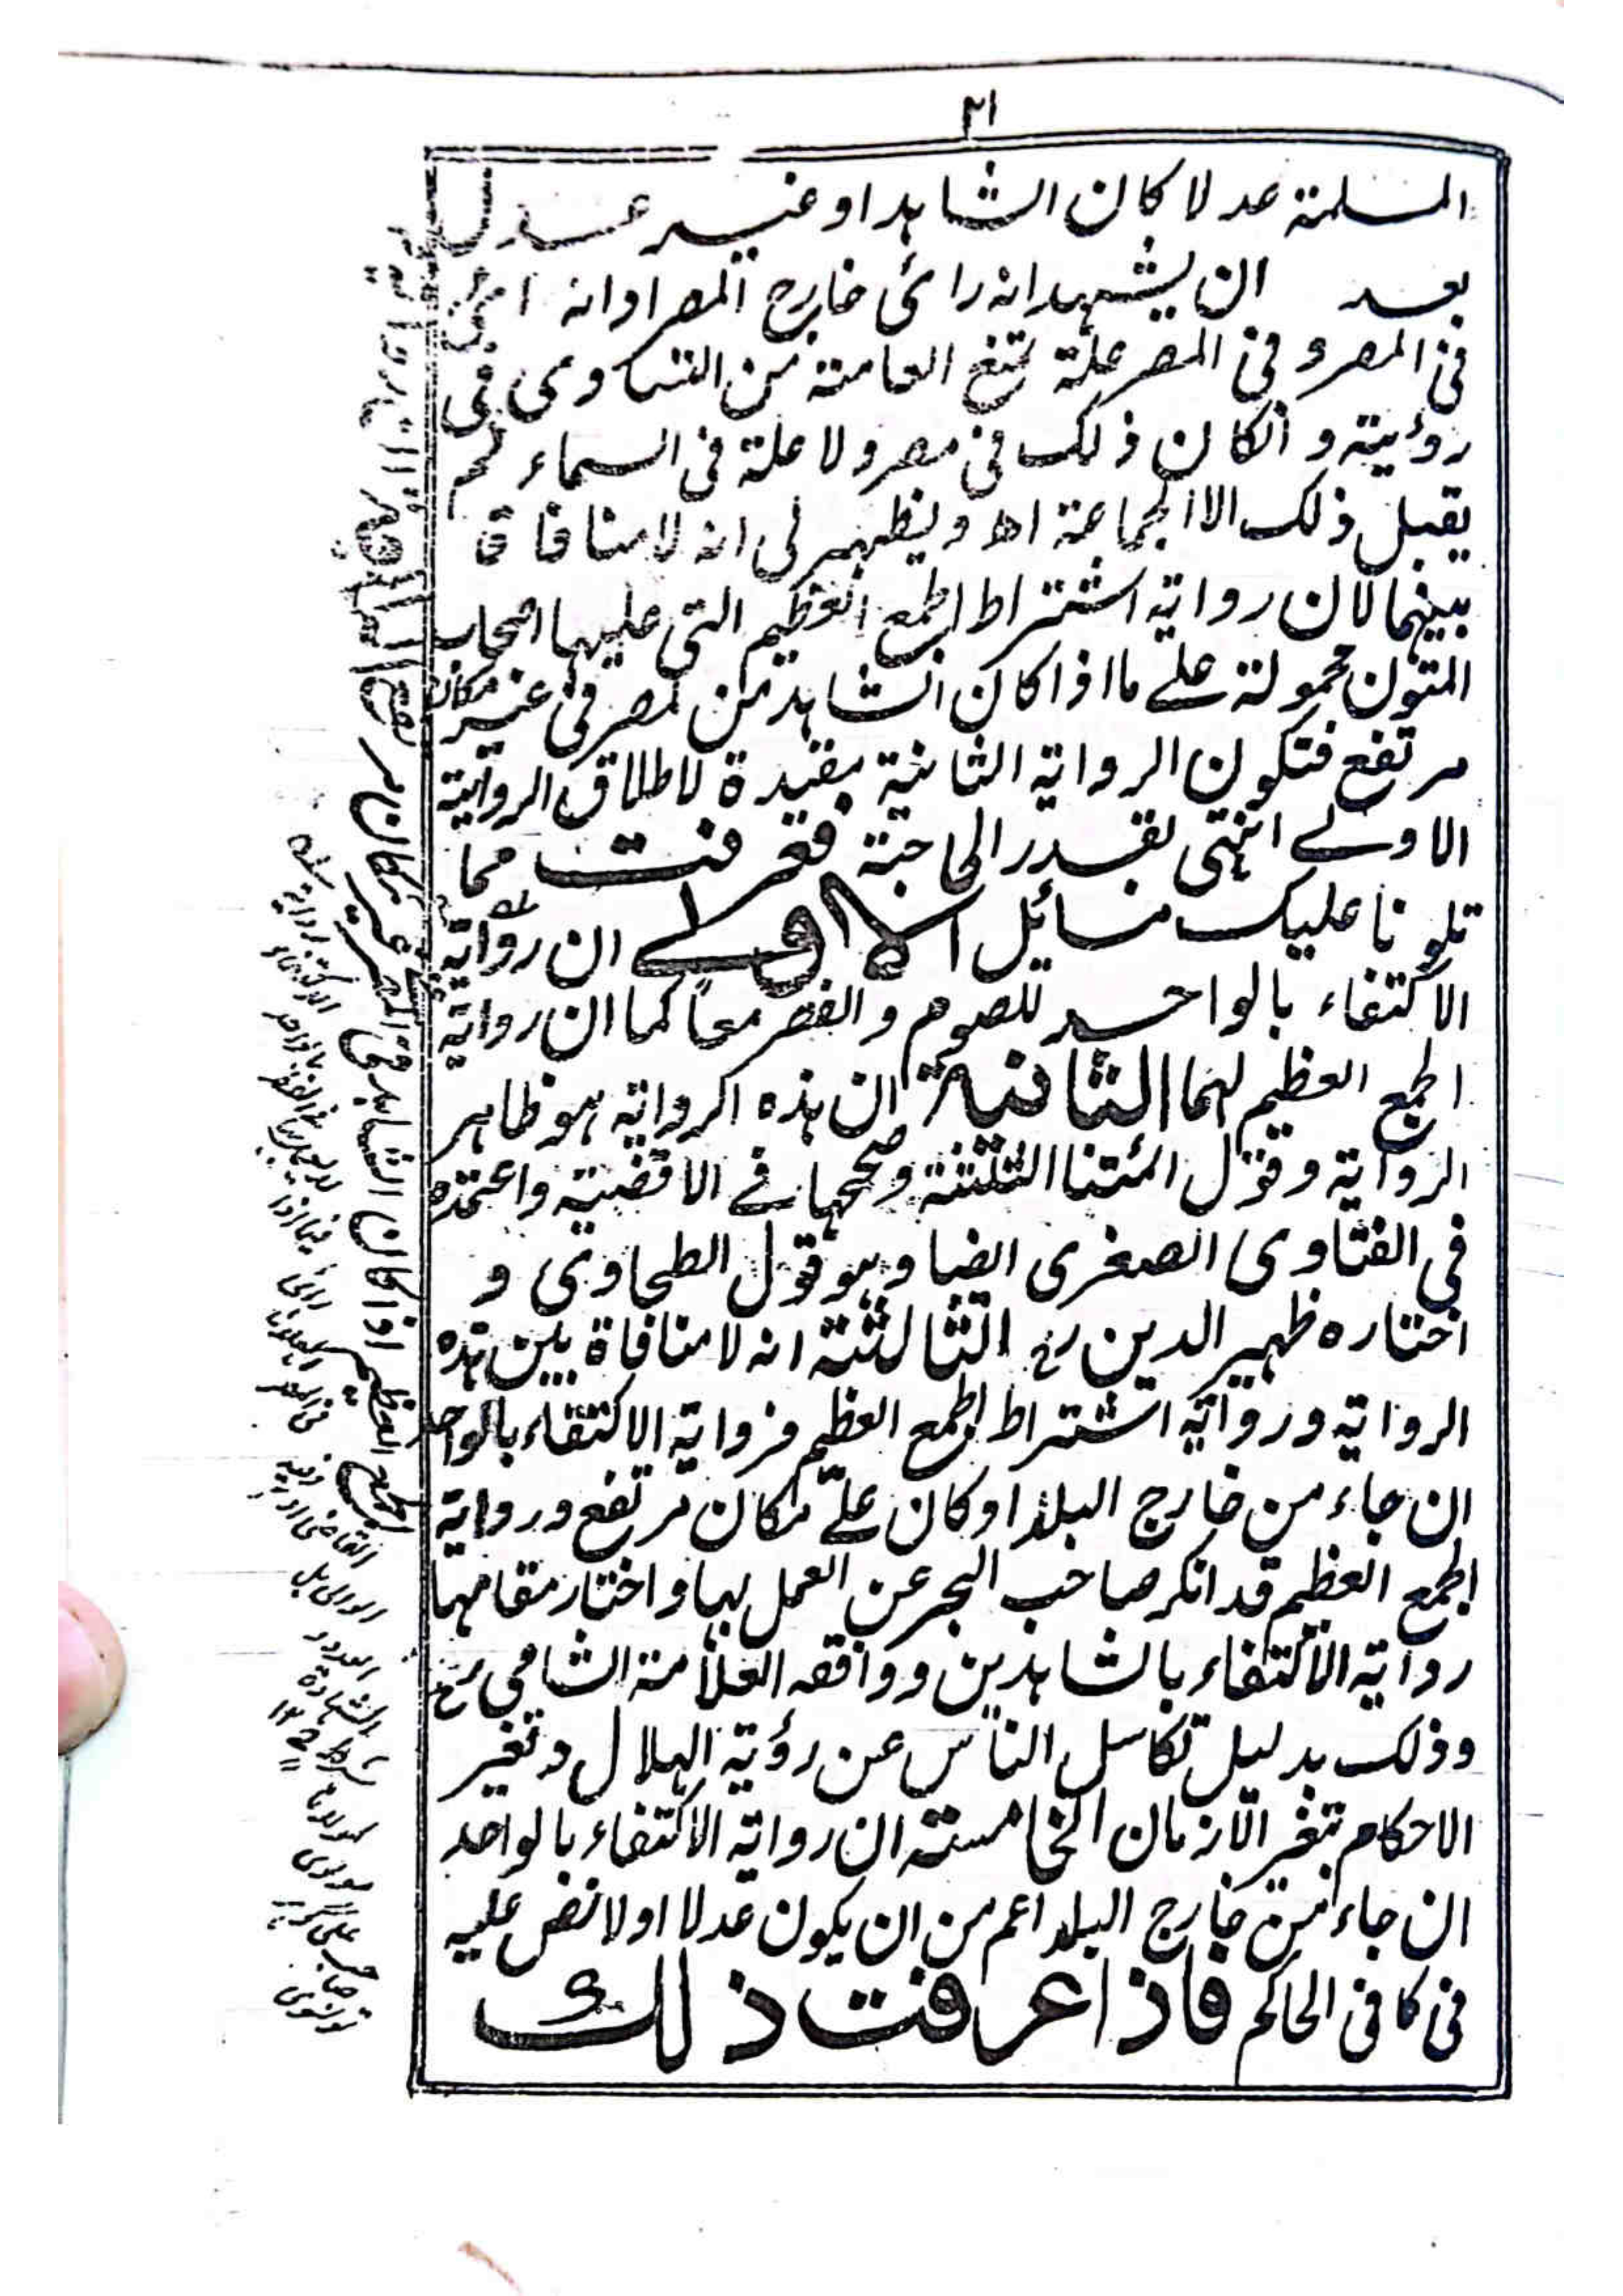 ٢١
المسلمة عدلا كان الشاهد او غير عدل
بعد ان يشهد انه رائ خارج المصر او انه
فى المصر و فى المصر علة تمنع العامة من التساوى فى
رؤيته و انكان ذلك فى مصر ولا علة فى السماء لم
يقبل ذلك الا الجماعة اه و يظهر لى انه لا منافاة
بينهما لان رواية اشتراط الجمع العظيم التى عليها اصحاب
المتون محمولة على ما اذا كان الشاهد من لمصر فى غير مكان
مرتفع فتكون الرواية الثانية مقيدة لاطلاق الرواية
الاولے انتهى بقدر الحاجة فعرفت مما
تلونا عليك مسائل الاولے ان رواية
الاكتفاء بالواحد للصوم والفطر معاً كما ان رواية
الجمع العظيم لهما الثانية ان هذه الرواية هو ظاهر
الرواية وقول ائمتنا الثلثة وصححها فے الاقضية واعتمده
فى الفتاوى الصغرى ايضا وهو قول الطحاوى و
اختاره ظهير الدين رح الثالثة انه لا منافاة بين هذه
الرواية ورواية اشتراط الجمع العظيم فرواية الاكتفاء بالواحد
ان جاء من خارج البلد او كان علے مكان مرتفع ورواية
الجمع العظيم قد انكر صاحب البحر عن العمل بها و اختار مقامها
رواية الاكتفاء بالشاهدين ووافقه العلامة الشامى رح
وذلك بدليل تكاسل الناس عن رؤية الهلال و تغير
الاحكام بتغير الازمان الخامسة ان رواية الاكتفاء بالواحد
ان جاء من خارج البلد اعم من ان يكون عدلا او لا نص عليه
فى كافى الحاكم فاذا عرفت ذلك
الجمع العظيم اذا كان الشاهد فى المصر غير مكان مر
رواية
الاكتفاء
بالواحد
فيما اذا
رائ
الهلال
فى المصر
القاضى او
الوالى بل
العدد
الشهادة
شرط ١٢
مولانا
مولوى